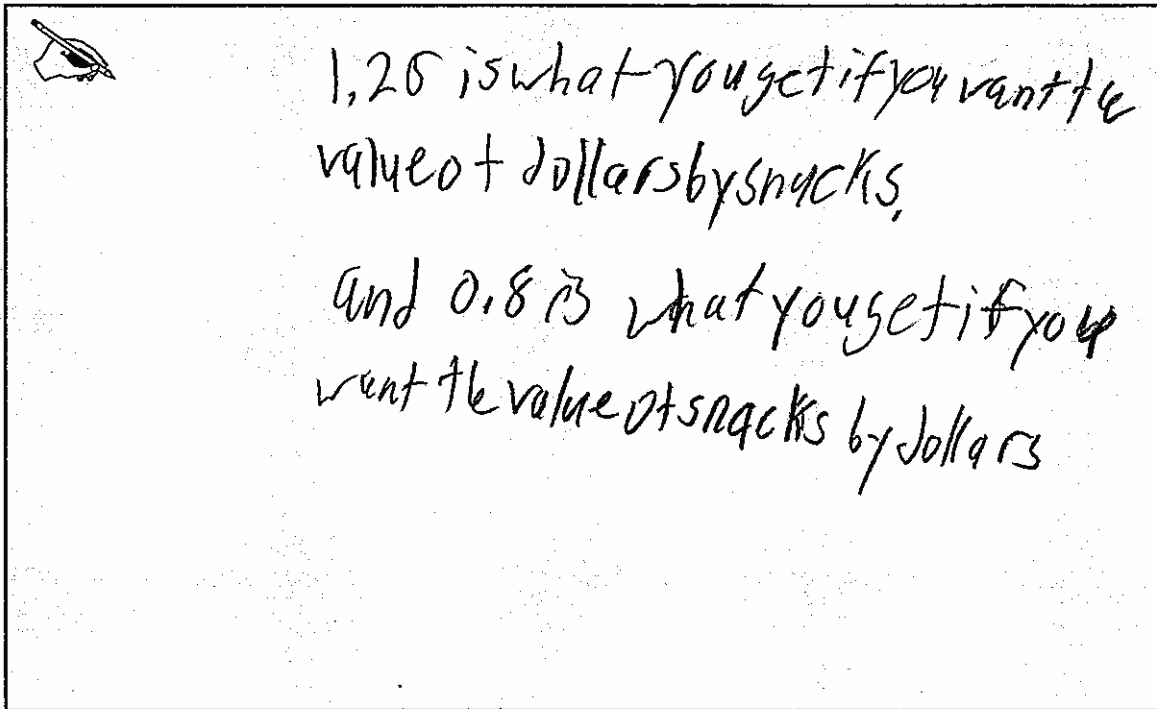 1.25 is what you get if you want the
value of dollars by snacks.
and 0.8 is what you get if you
want the value of snacks by dollars